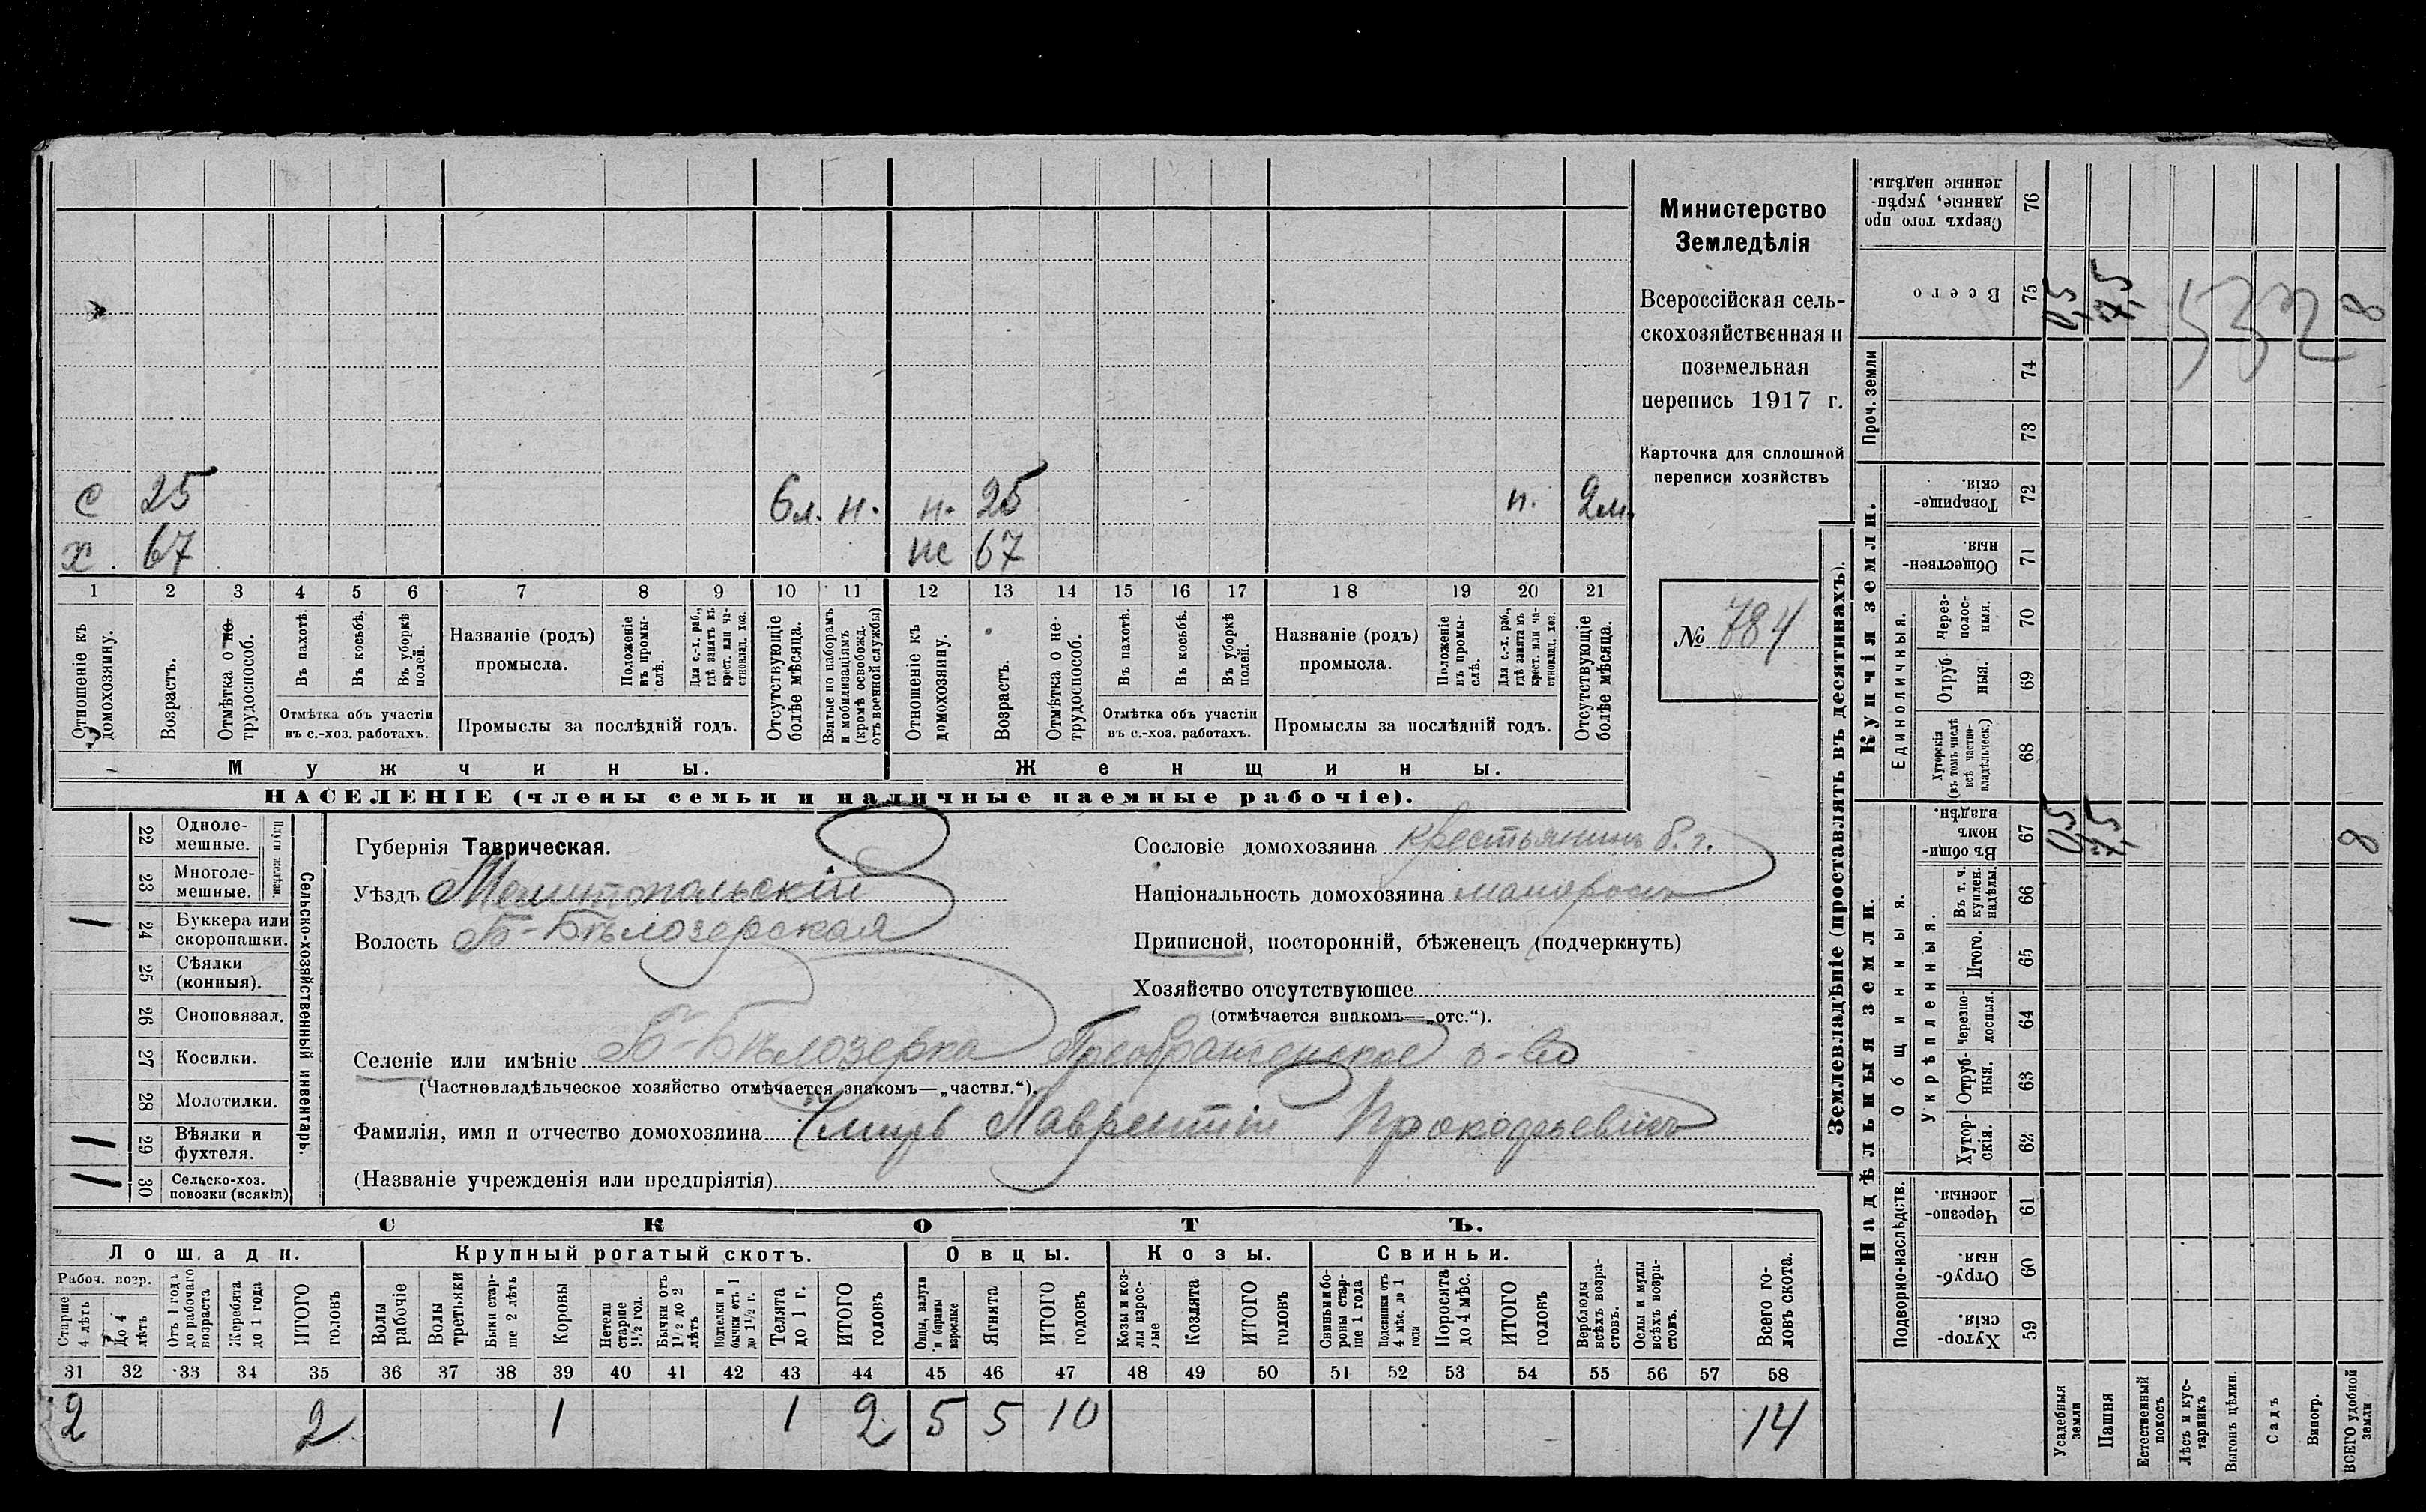 Министерство
Земледѣлія
Всероссійская сель-
скохозяйственная и
поземельная
перепись 1917 г.
Карточка для сплошной
переписи хозяйствъ
№ 784
с 25 6л. н. н. 25 п. 2м.
х. 67 нс 67
1 2 3 4 5 6 7 8 9 10 11 12 13 14 15 16 17 18 19 20 21
Отношеніе къ домохозяину.
Возрастъ.
Отмѣтка о не-трудоспособ.
Въ пахотѣ.
Въ косьбѣ.
Въ уборкѣ полей.
Отмѣтка объ участіи
въ с.-хоз. работахъ.
Названіе (родъ)
промысла.
Положеніе въ промы-слѣ.
Для с.-х. раб., гдѣ занятъ въ крест. или ча-стновлад. хоз.
Промыслы за послѣдній годъ.
Отсутствующіе болѣе мѣсяца.
Взятые по наборамъ и мобилизаціямъ (кромѣ освобожд. отъ военной службы)
Отношеніе къ домохозяину.
Возрастъ.
Отмѣтка о не-трудоспособ.
Въ пахотѣ.
Въ косьбѣ.
Въ уборкѣ полей.
Отмѣтка объ участіи
въ с.-хоз. работахъ.
Названіе (родъ)
промысла.
Положеніе въ промы-слѣ.
Для с.-х. раб., гдѣ занята въ крест. или ча-стновлад. хоз.
Промыслы за послѣдній годъ.
Отсутствующіе болѣе мѣсяца.
Мужчины. Женщины.
НАСЕЛЕНІЕ (члены семьи и наличные наемные рабочіе).
Сельско-хозяйственный инвентарь.
Плуги желѣзн.
22 Одноле-мешные.
23 Многоле-мешные.
1 24 Буккера или скоропашки.
25 Сѣялки (конныя).
26 Сноповязал.
27 Косилки.
28 Молотилки.
1 29 Вѣялки и фухтеля.
1 30 Сельско-хоз. повозки (всякія)
Губернія Таврическая.
Уѣздъ Мелитопольскій
Волость Б-Бѣлозерская
Сословіе домохозяина крестьянинъ б. г.
Національность домохозяина малороссъ
Приписной, посторонній, бѣженецъ (подчеркнуть)
Хозяйство отсутствующее
(отмѣчается знакомъ—„отс.“).
Селеніе или имѣніе Б-Бѣлозерка Преображенское о-во
(Частновладѣльческое хозяйство отмѣчается знакомъ—„частвл.“).
Фамилія, имя и отчество домохозяина Лаврентій Прокофьевичъ
(Названіе учрежденія или предпріятія)
СКОТЪ.
Лошади. Крупный рогатый скотъ. Овцы. Козы. Свиньи.
Рабоч. возр.
Старше 4 лѣтъ
До 4 лѣтъ
Отъ 1 года до рабочаго возраста
Жеребята до 1 года
ИТОГО головъ
Волы рабочіе
Волы третьяки
Быки стар-ше 2 лѣтъ
Коровы
Нетели старше 1½ год.
Бычки отъ 1½ до 2 лѣтъ
Подтелки и бычки отъ 1 до 1½ г.
Телята до 1 г.
ИТОГО головъ
Овцы, валухи и бараны взрослые
Ягнята
ИТОГО головъ
Козы и коз-лы взрос-лые
Козлята
ИТОГО головъ
Свиньи и бо-ровы стар-ше 1 года
Подсвинки отъ 4 мѣс. до 1 года
Поросята до 4 мѣс.
ИТОГО головъ
Верблюды всѣхъ возра-стовъ.
Ослы и мулы всѣхъ возра-стовъ.
Всего го-ловъ скота.
31 32 33 34 35 36 37 38 39 40 41 42 43 44 45 46 47 48 49 50 51 52 53 54 55 56 57 58
2 2 1 1 2 5 5 10 14
Землевладѣніе (проставлять въ десятинахъ).
Сверхъ того про-данные, укрѣп-ленные надѣлы. 76
Всего 75 0,5 7,5 8
532
Проч. земли
74
73
Купчія земли.
Товарище-скія. 72
Обществен-ныя. 71
Единоличныя.
Через-полос-ныя. 70
Отруб-ныя. 69
Хуторскія (въ томъ числѣ всѣ частно-владѣльческ.) 68
Надѣльныя земли.
Общинныя.
Въ общи-номъ владѣн. 67 0,5 7,5 8
Укрѣпленныя.
Въ т. ч. куплен. надѣлы. 66
Итого. 65
Черезпо-лосныя. 64
Отруб-ныя. 63
Хутор-скія. 62
Подворно-наслѣдств.
Черезпо-лосныя. 61
Отруб-ныя. 60
Хутор-скія. 59
Усадебныя земли
Пашня
Естественный покосъ
Лѣсъ и кус-тарникъ
Выгонъ цѣлин.
Садъ
Виногр.
ВСЕГО удобной земли